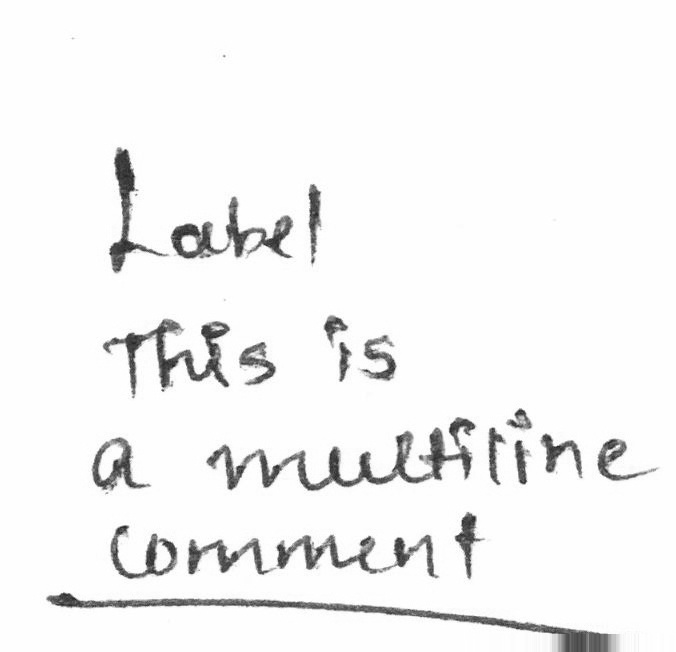 Label
This is
a multiline
comment